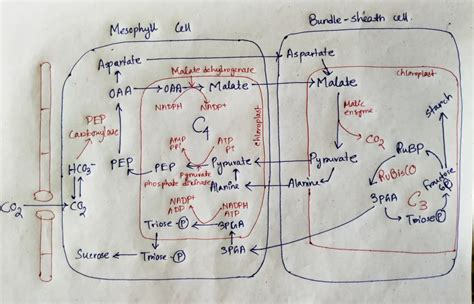 Mesophyll Cell
Bundle-sheath cell.
Aspartate
Aspartate
Malate dehydrogenase
chloroplast
OAA
OAA
Malate
Malate
NADPH
NADP+
PEP
Carboxylase
C4
chloroplast
Malic
enzyme
starch
CO2
AMP
PPi
ATP
Pi
HCO3-
PEP
PEP
Pyruvate
Pyruvate
RuBP
Pyruvate
phosphate dikinase
Alanine
Alanine
RuBisCO
fructose
6P
CO2
CO2
NADP+
ADP
NADPH
ATP
3PGA
C3
Triose-P
Triose-P
3PGA
Sucrose
Triose-P
3PGA